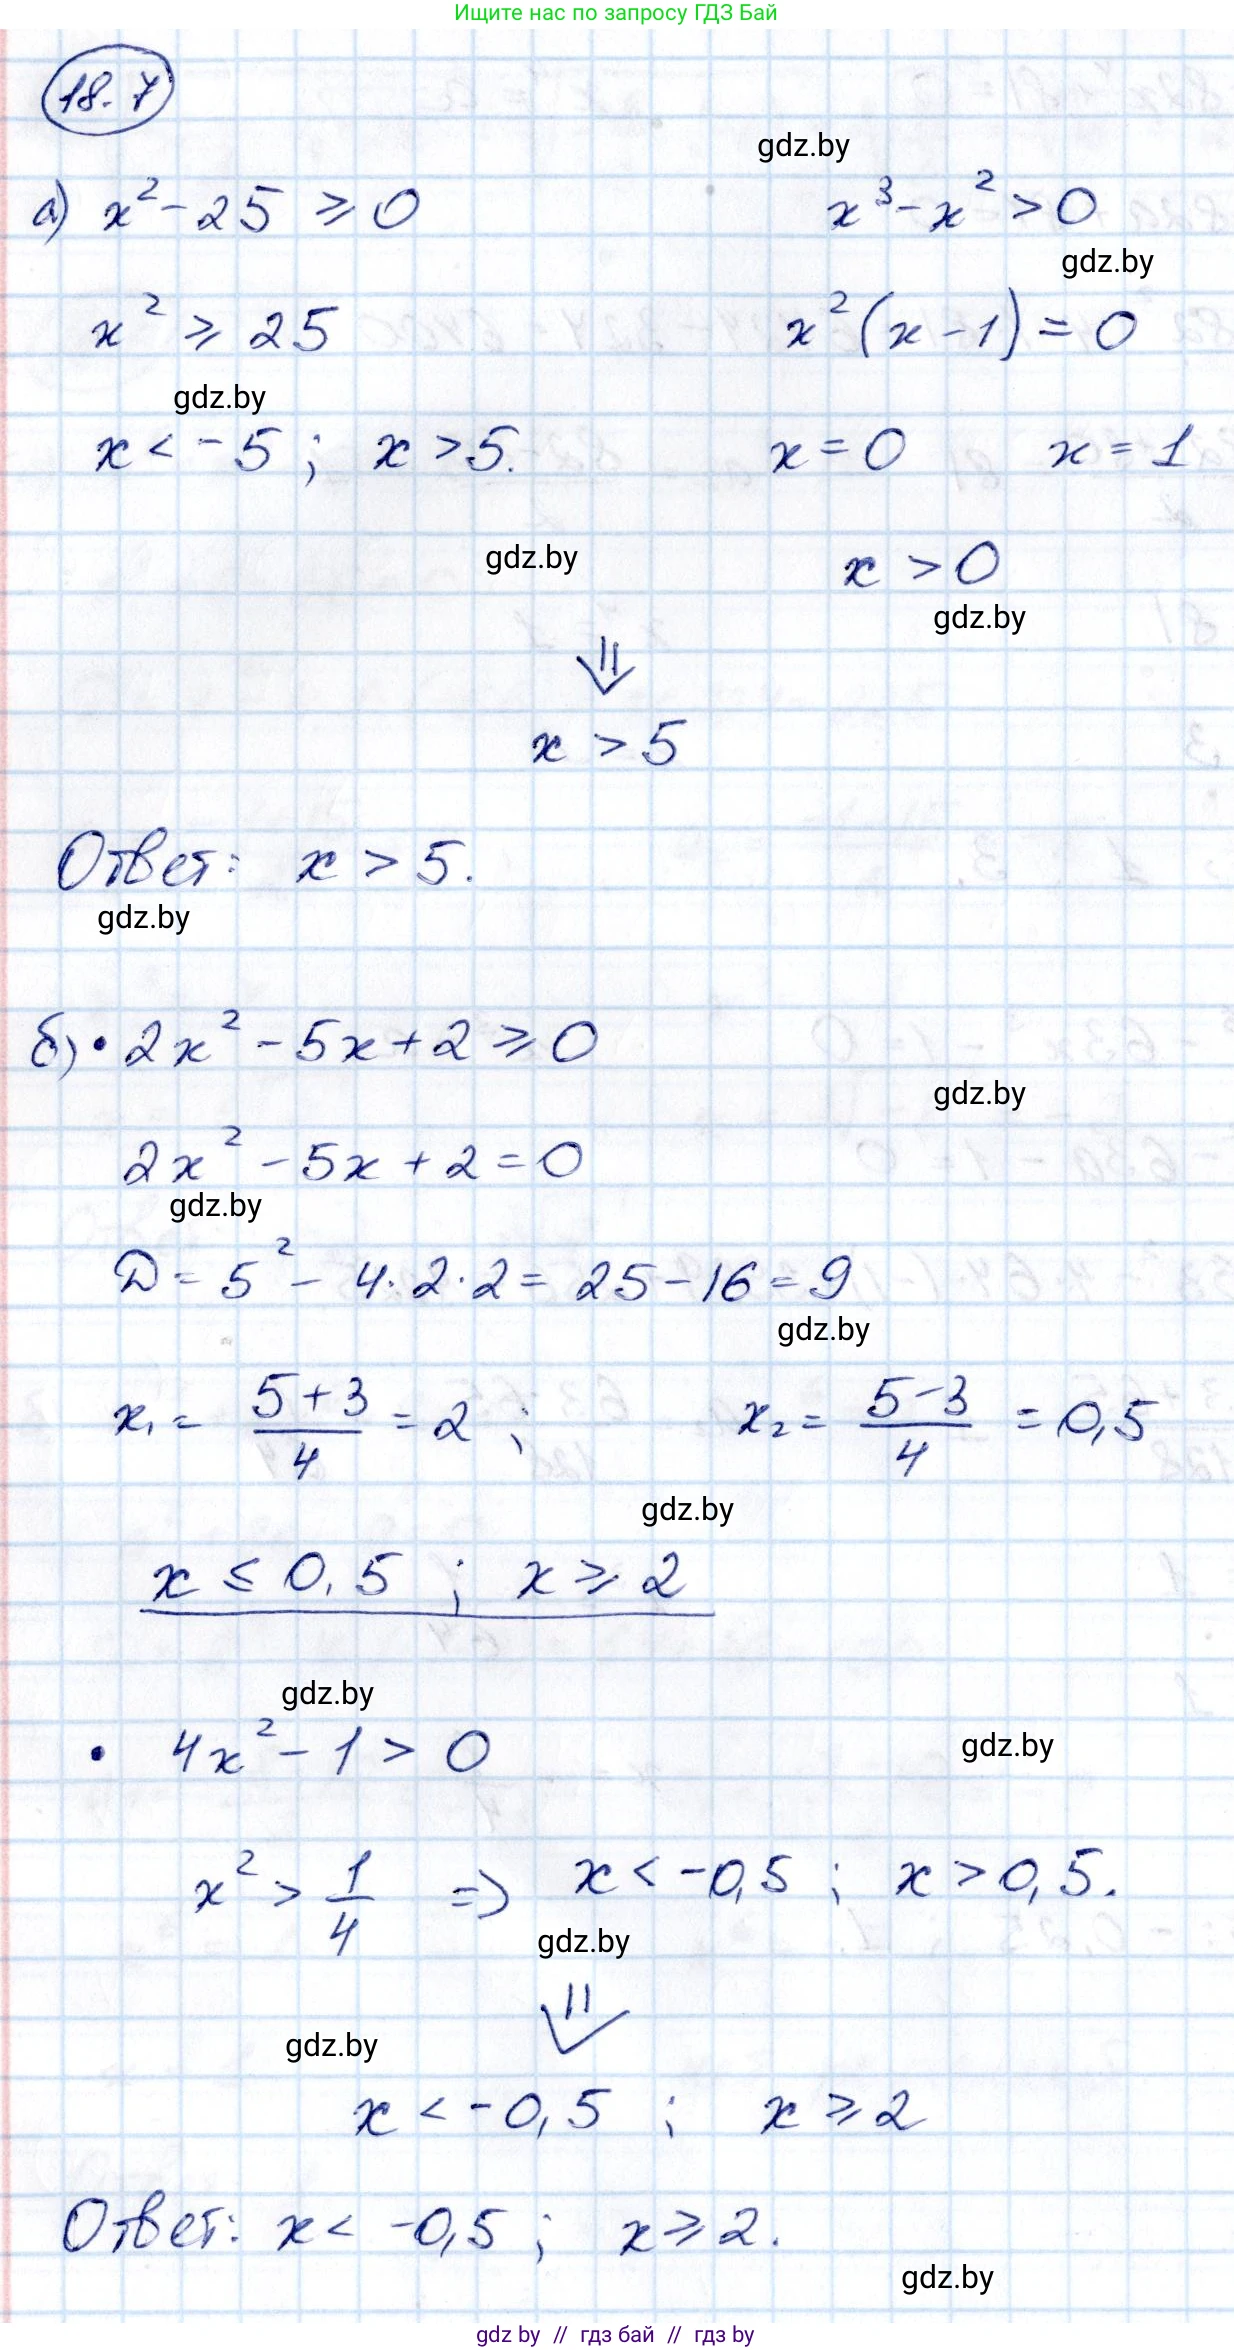 Ищите нас по запросу ГДЗ Бай
18.7
gdz.by
а) x² - 25 ⩾ 0
x³ - x² > 0
gdz.by
x² ⩾ 25
x² (x - 1) = 0
gdz.by
x < -5 ; x > 5.
x = 0 x = 1
gdz.by
x > 0
gdz.by
⇓
x > 5
Ответ: x > 5.
gdz.by
б) • 2x² - 5x + 2 ⩾ 0
gdz.by
2x² - 5x + 2 = 0
gdz.by
D = 5² - 4·2·2 = 25 - 16 = 9
gdz.by
x₁ = (5+3)/4 = 2 ; x₂ = (5-3)/4 = 0,5
gdz.by
x ≤ 0,5 ; x ⩾ 2
gdz.by
• 4x² - 1 > 0
gdz.by
x² > 1/4 => x < -0,5 ; x > 0,5.
gdz.by
⇓
gdz.by
x < -0,5 ; x ⩾ 2
Ответ: x < -0,5 ; x ⩾ 2.
gdz.by
gdz by // гдз бай // гдз by